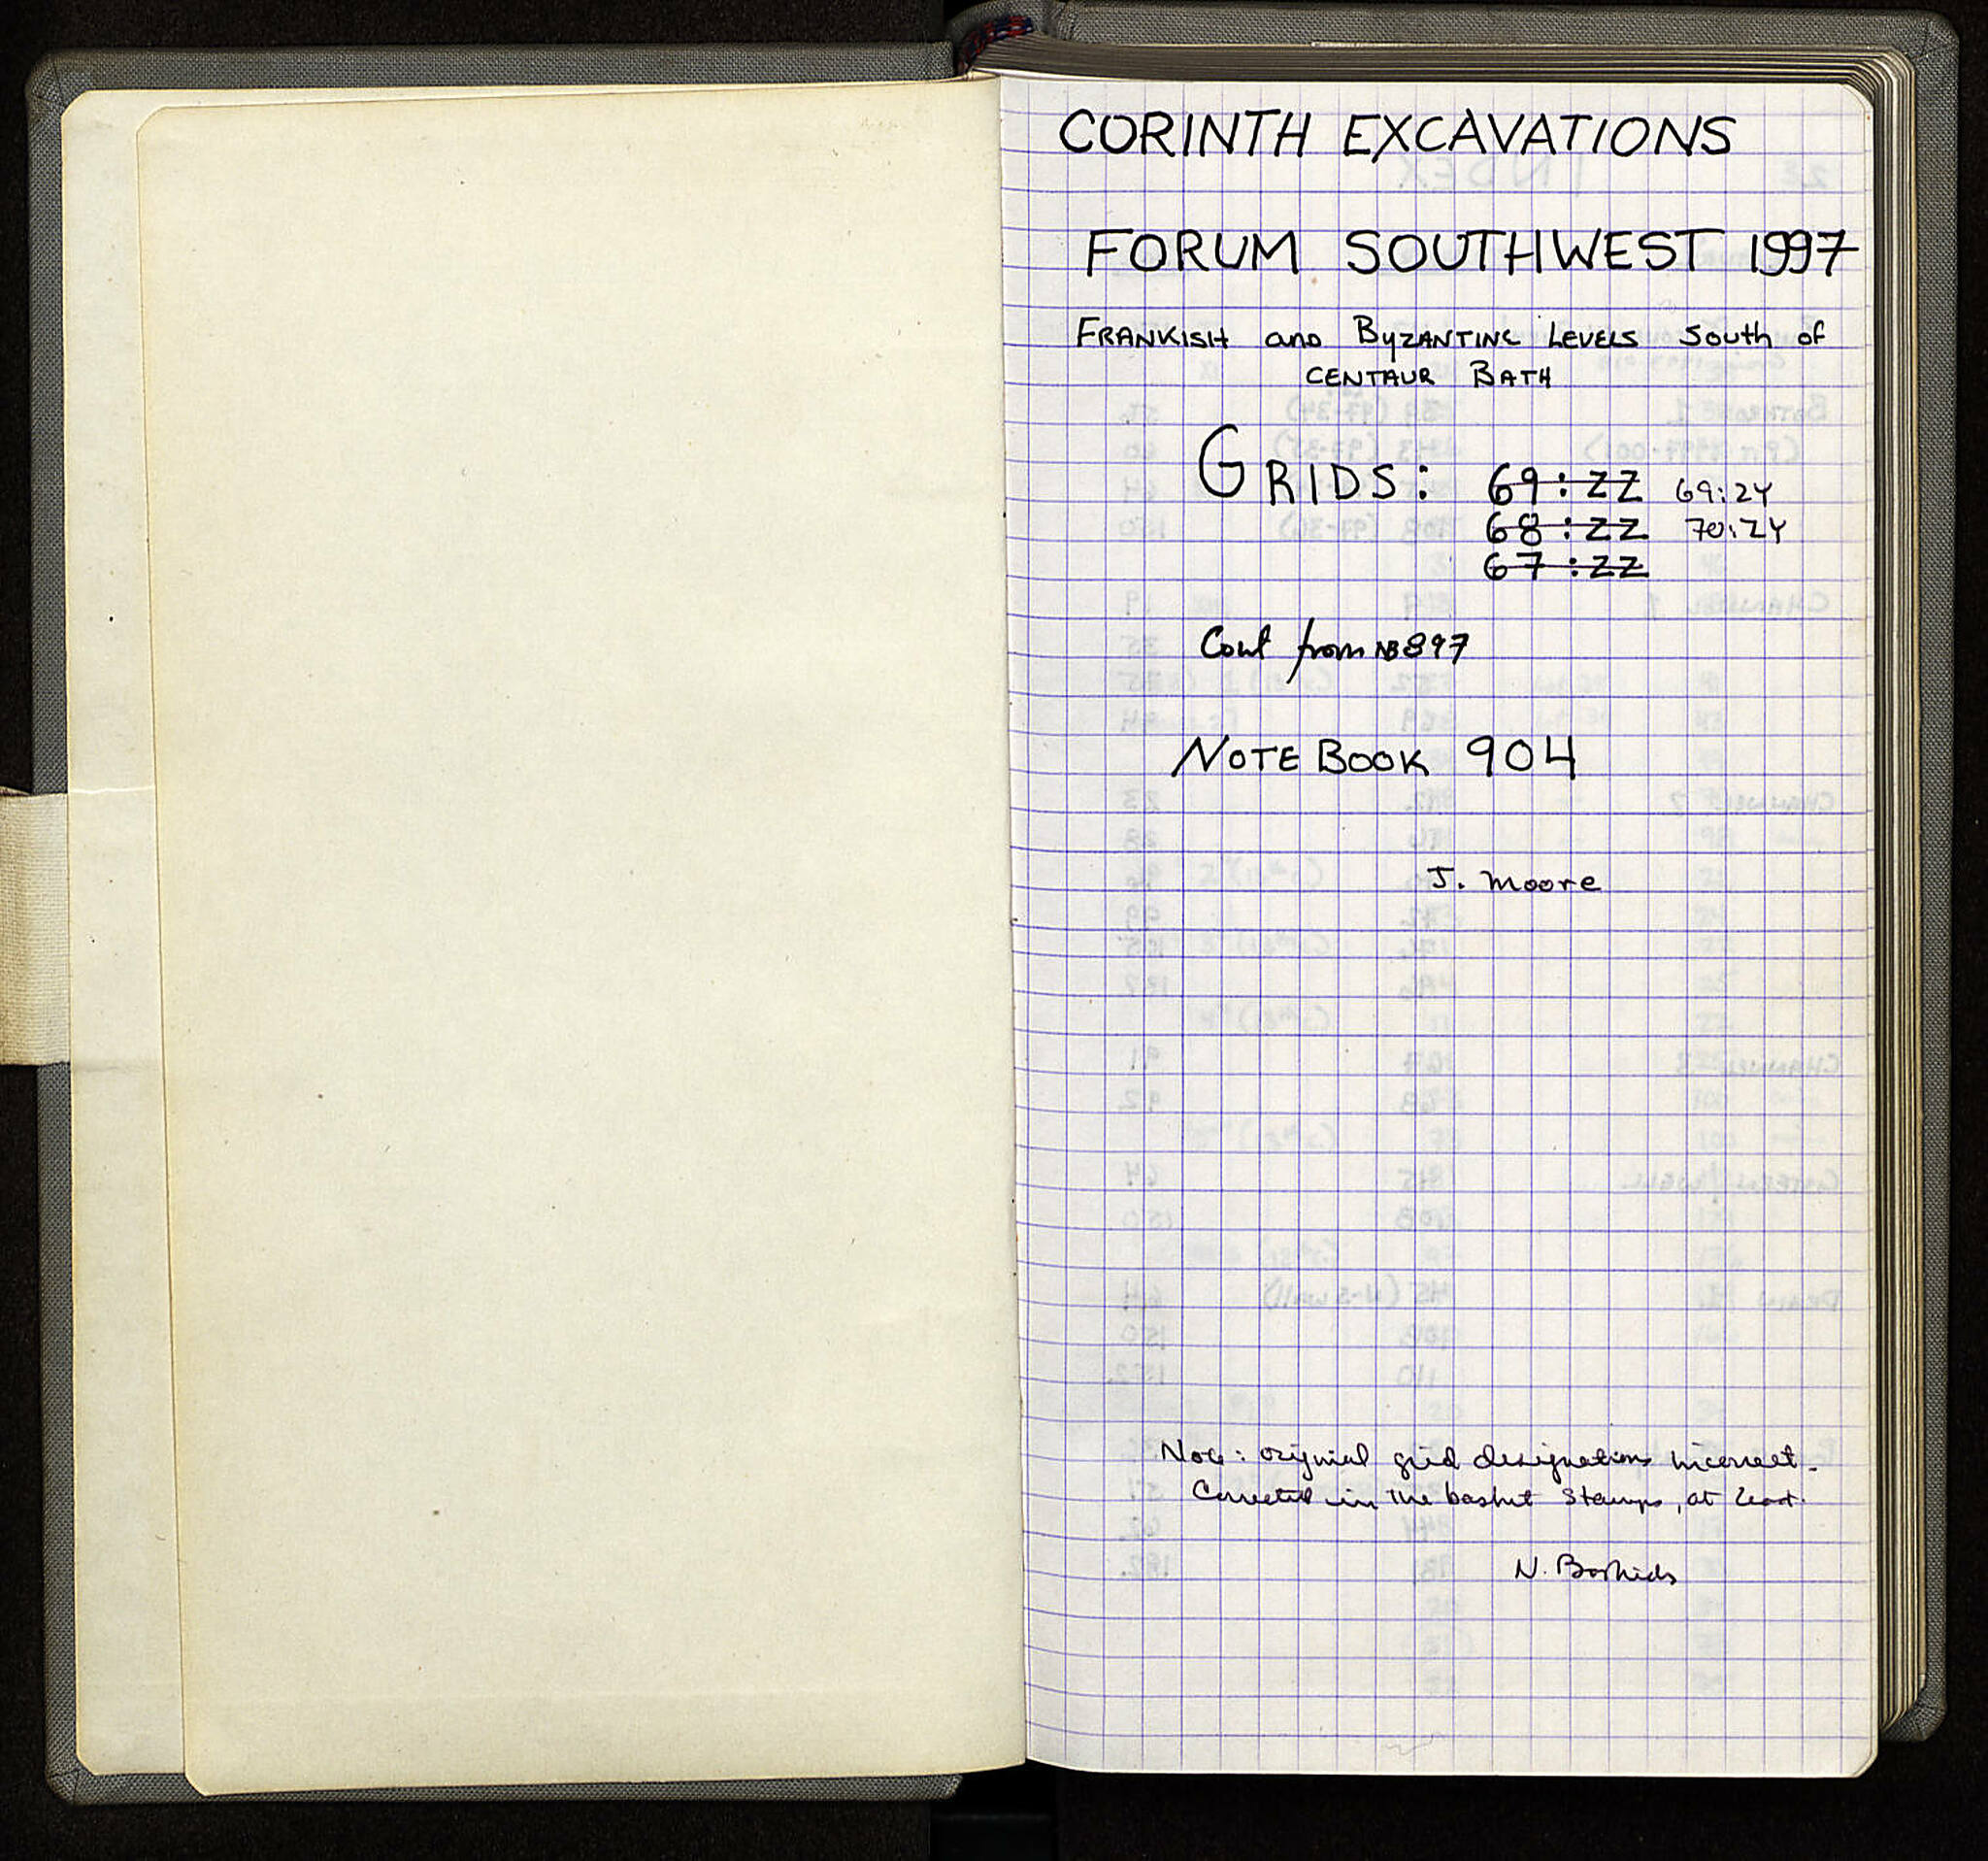 CORINTH EXCAVATIONS
FORUM SOUTHWEST 1997
FRANKISH and BYZANTINE LEVELS South of
CENTAUR BATH
GRIDS: 69:ZZ 69:ZY
68:ZZ 70:ZY
67:ZZ
Cont from NB 897
NOTEBOOK 904
J. Moore
Note: original grid designations incorrect.
Corrected in the basket stamps, at least.
N. Bookidis